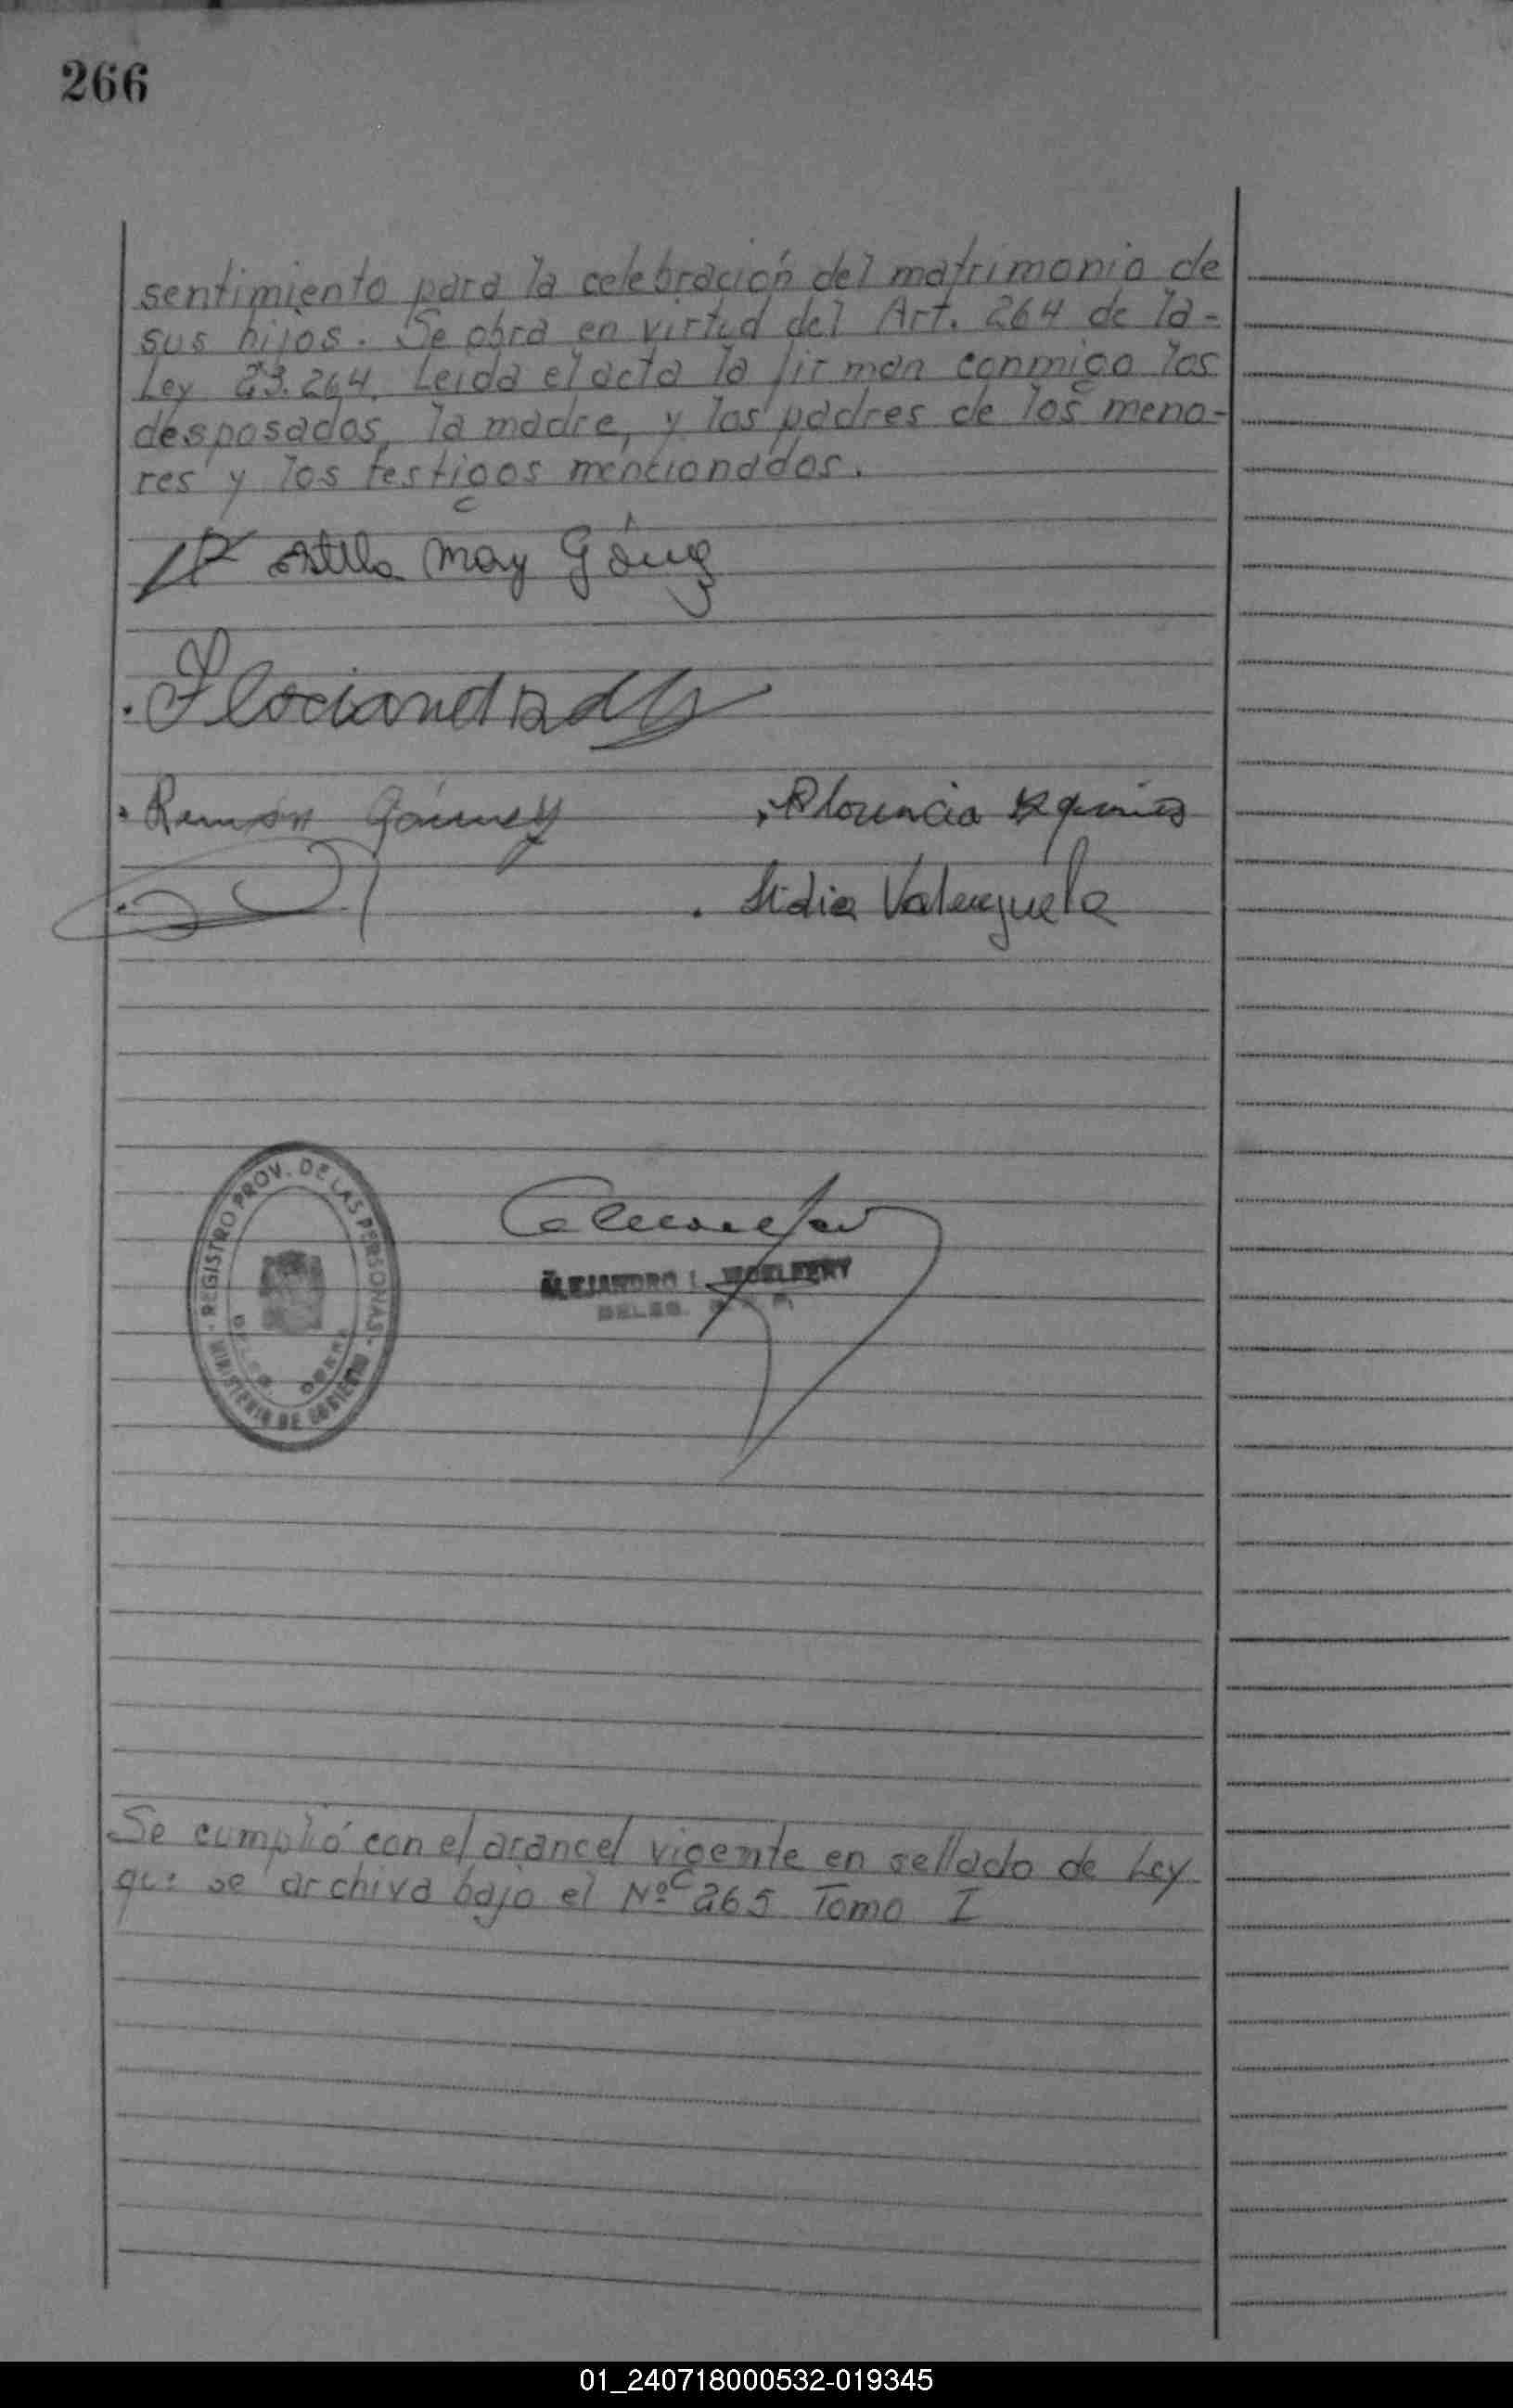 266
sentimiento para la celebración del matrimonio de
sus hijos. Se obra en virtud del Art. 264 de la-
Ley 23.264. Leida el acta la firman conmigo los
desposados, la madre, y los padres de los meno-
res y los testigos mencionados.
Estela May
Ramón Gómez
Florencia
Lidia Valenzuela
REGISTRO PROV. DE LAS PERSONAS
MINISTERIO DE GOBIERNO
ALEJANDRO I.
DELEG.
Se cumplió con el arancel vigente en sellado de Ley
que se archiva bajo el Nº 265 Tomo I
01_240718000532-019345